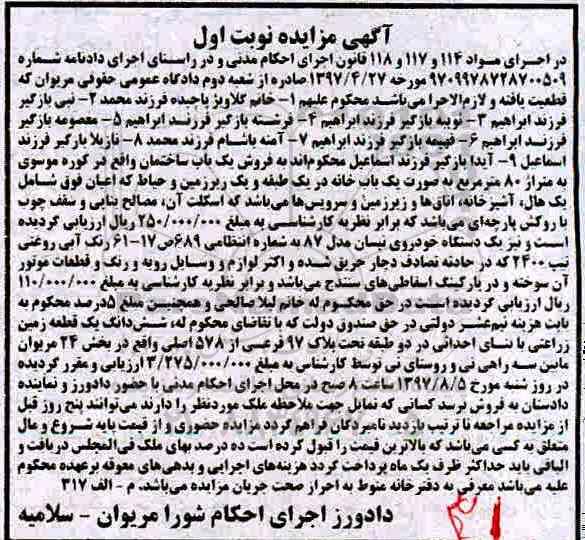 آگهی مزایده نوبت اول
در اجرای مواد ۱۱۴ و ۱۱۷ و ۱۱۸ قانون اجرای احکام مدنی و در راستای اجرای دادنامه شماره
۹۷۰۹۹۷۸۷۲۸۷۰۰۵۰۹ مورخه ۱۳۹۷/۴/۲۷ صادره از شعبه دوم دادگاه عمومی حقوقی مریوان که
قطعیت یافته و لازم‌الاجرا می‌باشد محکوم علیهم ۱- خانم گلاویژ پاچیده فرزند محمد ۲- نبی بازگیر
فرزند ابراهیم ۳- نوینه بازگیر فرزند ابراهیم ۴- فرشته بازگیر فرزند ابراهیم ۵- معصومه بازگیر
فرزند ابراهیم ۶- فهیمه بازگیر فرزند ابراهیم ۷- آمنه باشام فرزند محمد ۸- نازیلا بازگیر فرزند
اسماعیل ۹- آیدا بازگیر فرزند اسماعیل محکوم‌اند به فروش یک باب ساختمان واقع در کوره موسوی
به متراژ ۸۰ مترمربع به صورت یک باب خانه در یک طبقه و یک زیرزمین و حیاط که اعیان فوق شامل
یک هال، آشپزخانه، اتاق‌ها و زیرزمین و سرویس‌ها می‌باشد که اسکلت آن، مصالح بنایی و سقف چوب
با روکش پارچه‌ای می‌باشد که برابر نظریه کارشناسی به مبلغ ۲۵۰/۰۰۰/۰۰۰ ریال ارزیابی گردیده
است و نیز یک دستگاه خودروی نیسان مدل ۸۷ به شماره انتظامی ۶۸۹ص۱۷-۶۱ رنگ آبی روغنی
تیپ ۲۴۰۰ که در حادثه تصادف دچار حریق شده و اکثر لوازم و وسایل رویه و رنگ و قطعات موتور
آن سوخته و در پارکینگ اسقاطی‌های سنندج می‌باشد و برابر نظریه کارشناسی به مبلغ ۱۱۰/۰۰۰/۰۰۰
ریال ارزیابی گردیده است در حق محکوم له خانم لیلا صالحی و همچنین مبلغ ۵درصد محکوم به
بابت هزینه نیم‌عشر دولتی در حق صندوق دولت که با تقاضای محکوم له، شش‌دانگ یک قطعه زمین
زراعتی با بنای احداثی در دو طبقه تحت پلاک ۹۷ فرعی از ۵۷۸ اصلی واقع در بخش ۲۴ مریوان
مابین سه راهی نی و روستای نی توسط کارشناس به مبلغ ۳/۲۷۵/۰۰۰/۰۰۰ ارزیابی و مقرر گردیده
در روز شنبه مورخ ۱۳۹۷/۸/۵ ساعت ۸ صبح در محل اجرای احکام مدنی با حضور دادورز و نماینده
دادستان به فروش برسد کسانی که تمایل جهت ملاحظه ملک موردنظر را دارند می‌توانند پنج روز قبل
از مزایده مراجعه تا ترتیب بازدید نامبردگان فراهم گردد مزایده حضوری و از قیمت پایه شروع و مال
متعلق به کسی می‌باشد که بالاترین قیمت را قبول کرده است ده درصد بهای ملک فی‌المجلس دریافت و
الباقی باید حداکثر ظرف یک ماه پرداخت گردد هزینه‌های اجرایی و بدهی‌های معوقه برعهده محکوم
علیه می‌باشد معرفی به دفترخانه منوط به احراز صحت جریان مزایده می‌باشد. م - الف ۳۱۷
دادورز اجرای احکام شورا مریوان - سلامیه